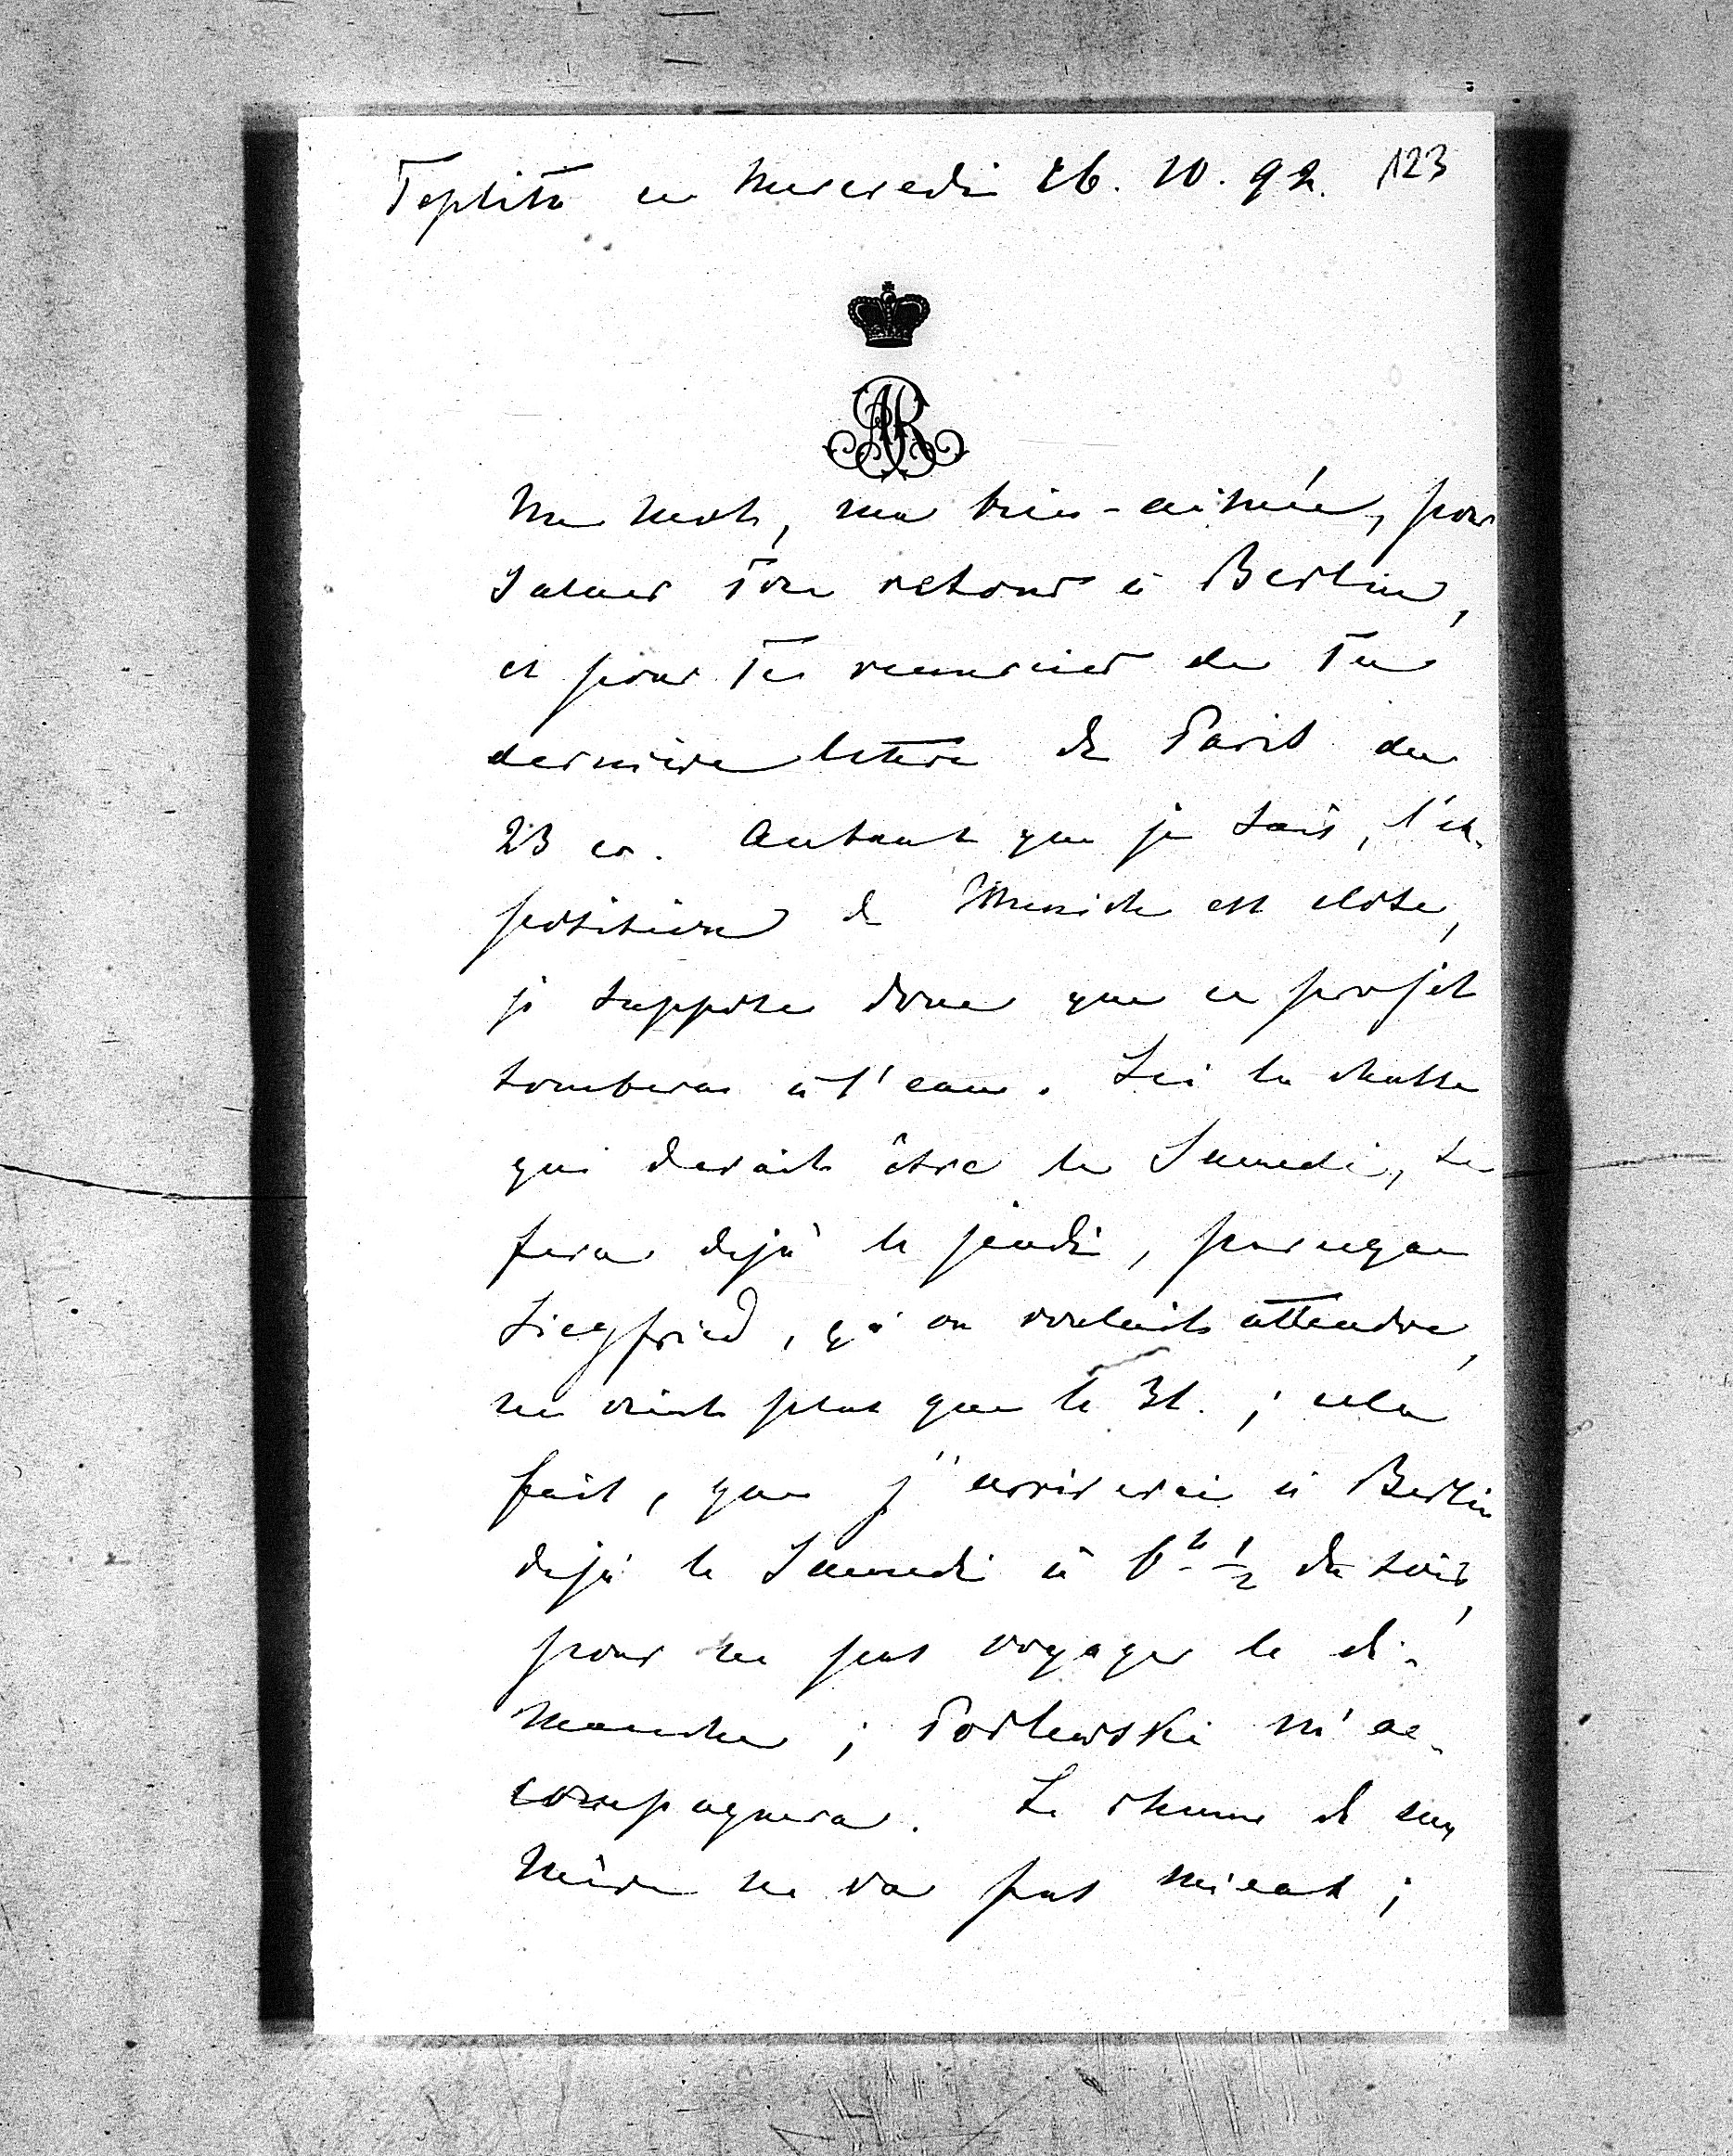 Teplitz ce Mercredi 26. 10. 92. 123
AR
Un mot, ma bien-aimée, pour
saluer Ton retour à Berlin,
et pour Te remercier de Ta
dernière lettre de Paris du
23 cr. Autant que je sais, l'ex-
position de Munich est close,
je suppose donc que ce projet
tombera à l'eau. Ici la chasse
qui devait être le Samedi, se
fera déjà le jeudi, parceque
Siegfried, qu'on voulait attendre,
ne vient plus que le 31.; cela
fait, que j'arriverai à Berlin
déjà le Samedi à 6 h 1/2 du soir,
pour ne pas voyager le di-
manche; m'ac-
compagnera. Le rhume de ma
mère ne va pas mieux;